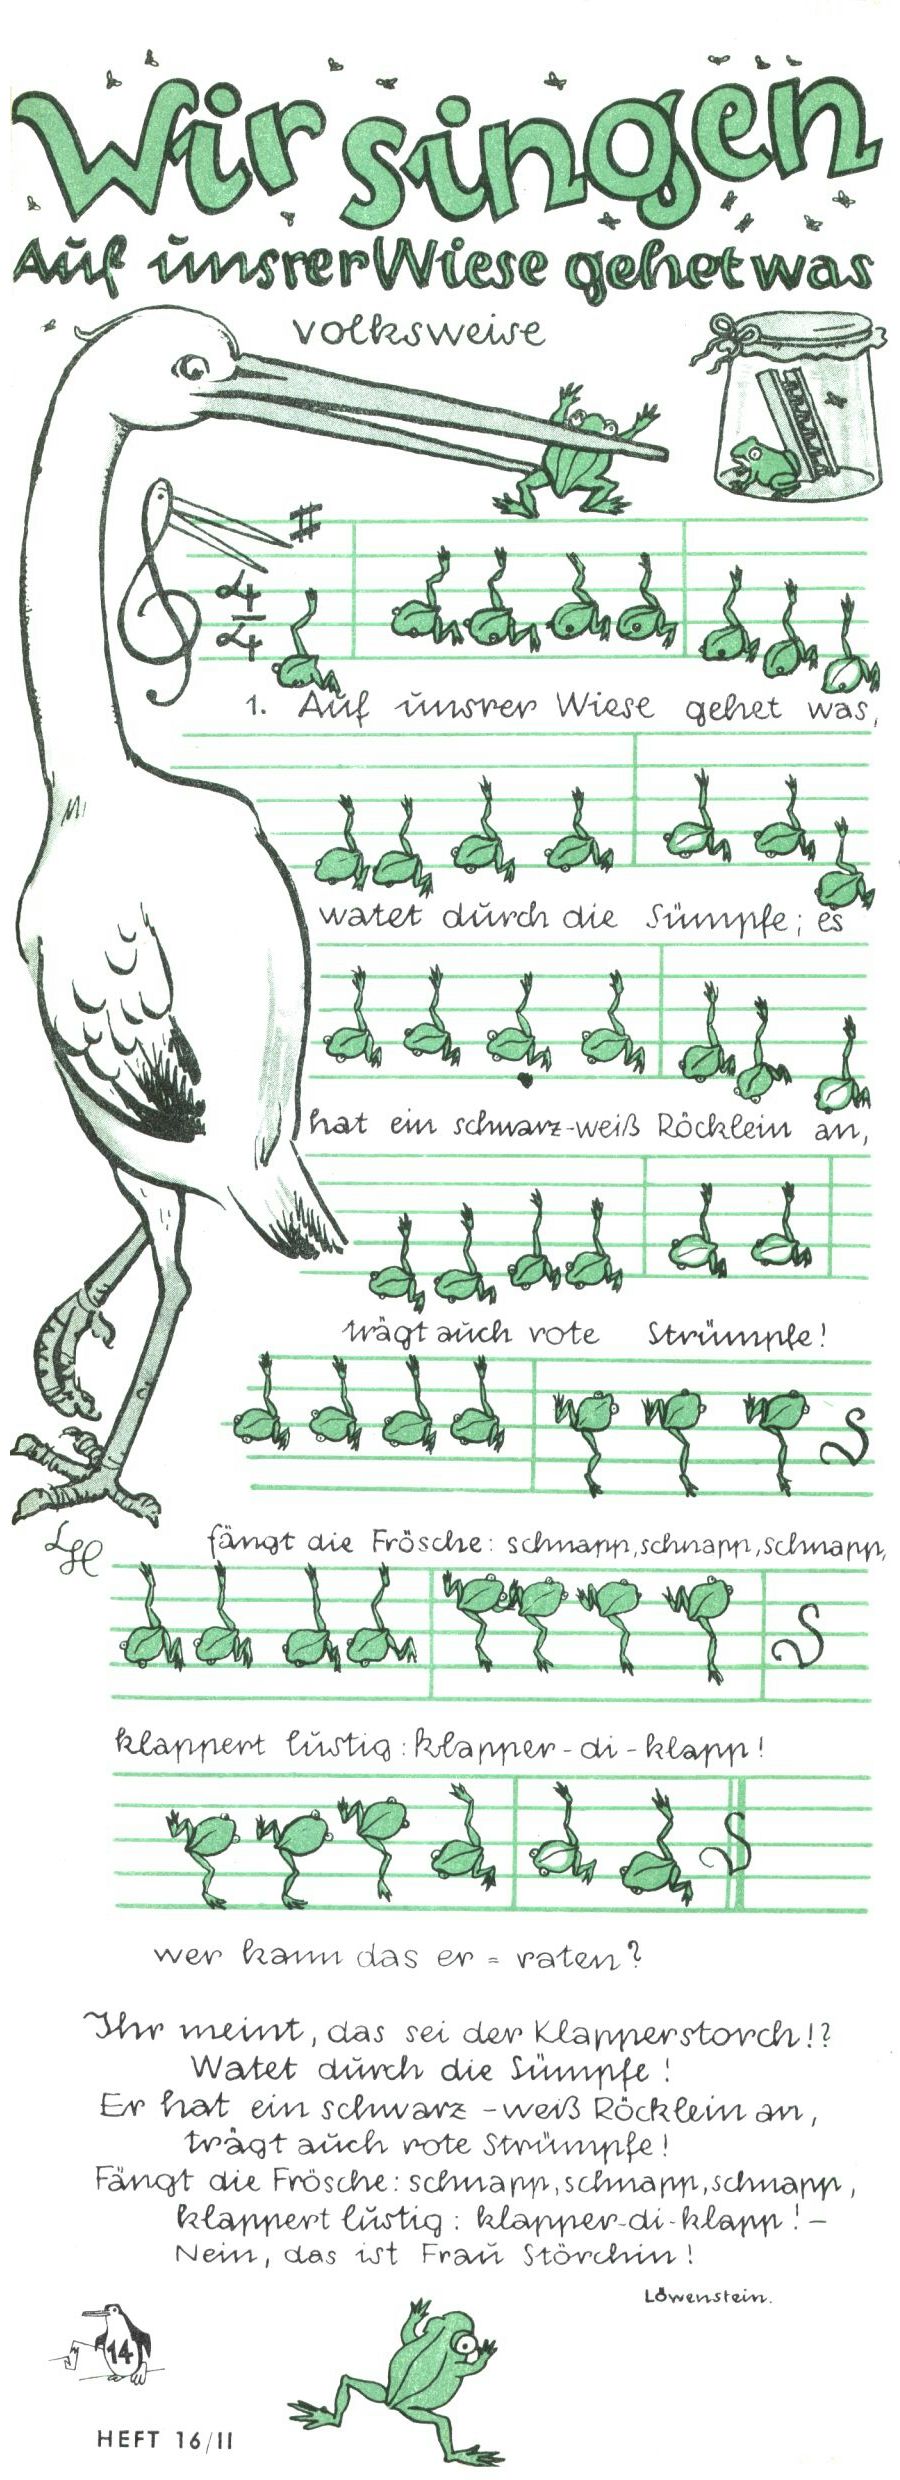 Wir singen
Auf unsrer Wiese gehet was
Volksweise
4/4
1. Auf unsrer Wiese gehet was,
watet durch die Sümpfe; es
hat ein schwarz-weiß Röcklein an,
trägt auch rote Strümpfe!
fängt die Frösche: schnapp, schnapp, schnapp,
LH
klappert lustig: klapper-di-klapp!
wer kann das er=raten?
Ihr meint, das sei der Klapperstorch!?
Watet durch die Sümpfe!
Er hat ein schwarz-weiß Röcklein an,
trägt auch rote Strümpfe!
Fängt die Frösche: schnapp, schnapp, schnapp,
klappert lustig: klapper-di-klapp! –
Nein, das ist Frau Störchin!
Löwenstein.
14
HEFT 16/II